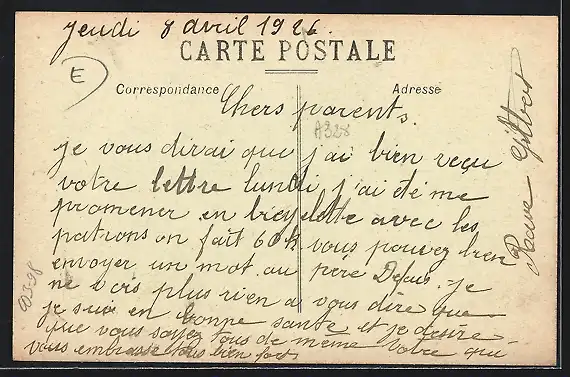 jeudi 8 avril 1926.
CARTE POSTALE
E
Correspondance
Adresse
Chers parents.
A328
je vous dirai que j'ai bien reçu
votre lettre lundi j'ai été me
promener en bicyclette avec les
patrons on fait 60 k. vous pouvez bien
envoyer un mot au père Defus. je
ne vois plus rien a vous dire que
je suis en bonne santé et je désire
que vous soyez tous de même votre qui
vous embrasse tous bien fort.
Gilbert